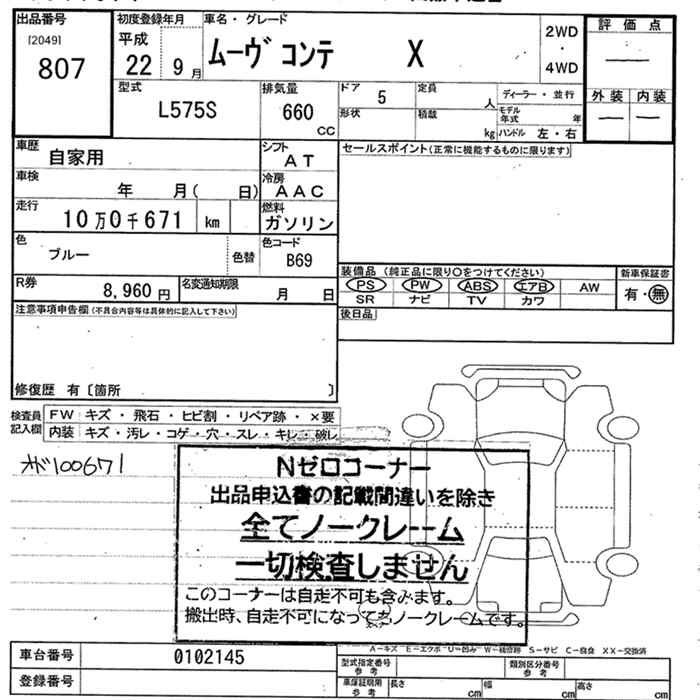 出品番号
[2049]
807
初度登録年月
平成
22 9月
車名・グレード
ムーヴ コンテ X
2WD
・
4WD
評価点
外装 内装
型式
L575S
排気量
660
CC
ドア 5
形状
定員
人
積載
kg
ディーラー・並行
モデル年式 年
ハンドル 左・右
車歴
自家用
シフト
AT
セールスポイント(正常に機能するものに限ります)
車検
年 月( 日)
冷房
AAC
走行
10万0千671 km
燃料
ガソリン
色
ブルー
色替
色コード
B69
R券
8,960円
名変通知期限
月 日
装備品(純正品に限り○をつけてください)
PS PW ABS エアB AW
SR ナビ TV カワ
新車保証書
有・無
後日品
注意事項申告欄(不具合内容等は具体的に記入して下さい)
修復歴 有〔箇所 〕
検査員記入欄
FW キズ・飛石・ヒビ割・リペア跡・×要
内装 キズ・汚レ・コゲ・穴・スレ・キレ・破レ
オド100671
Nゼロコーナー
出品申込書の記載間違いを除き
全てノークレーム
一切検査しません
このコーナーは自走不可も含みます。
搬出時、自走不可になってもノークレームです。
A-キズ E-エクボ U-凹み W-補修跡 S-サビ C-腐食 XX-交換済
車台番号 0102145
登録番号
型式指定番号
参考
類別区分番号
参考
車庫証明用
参考
長さ cm 幅 cm 高さ cm